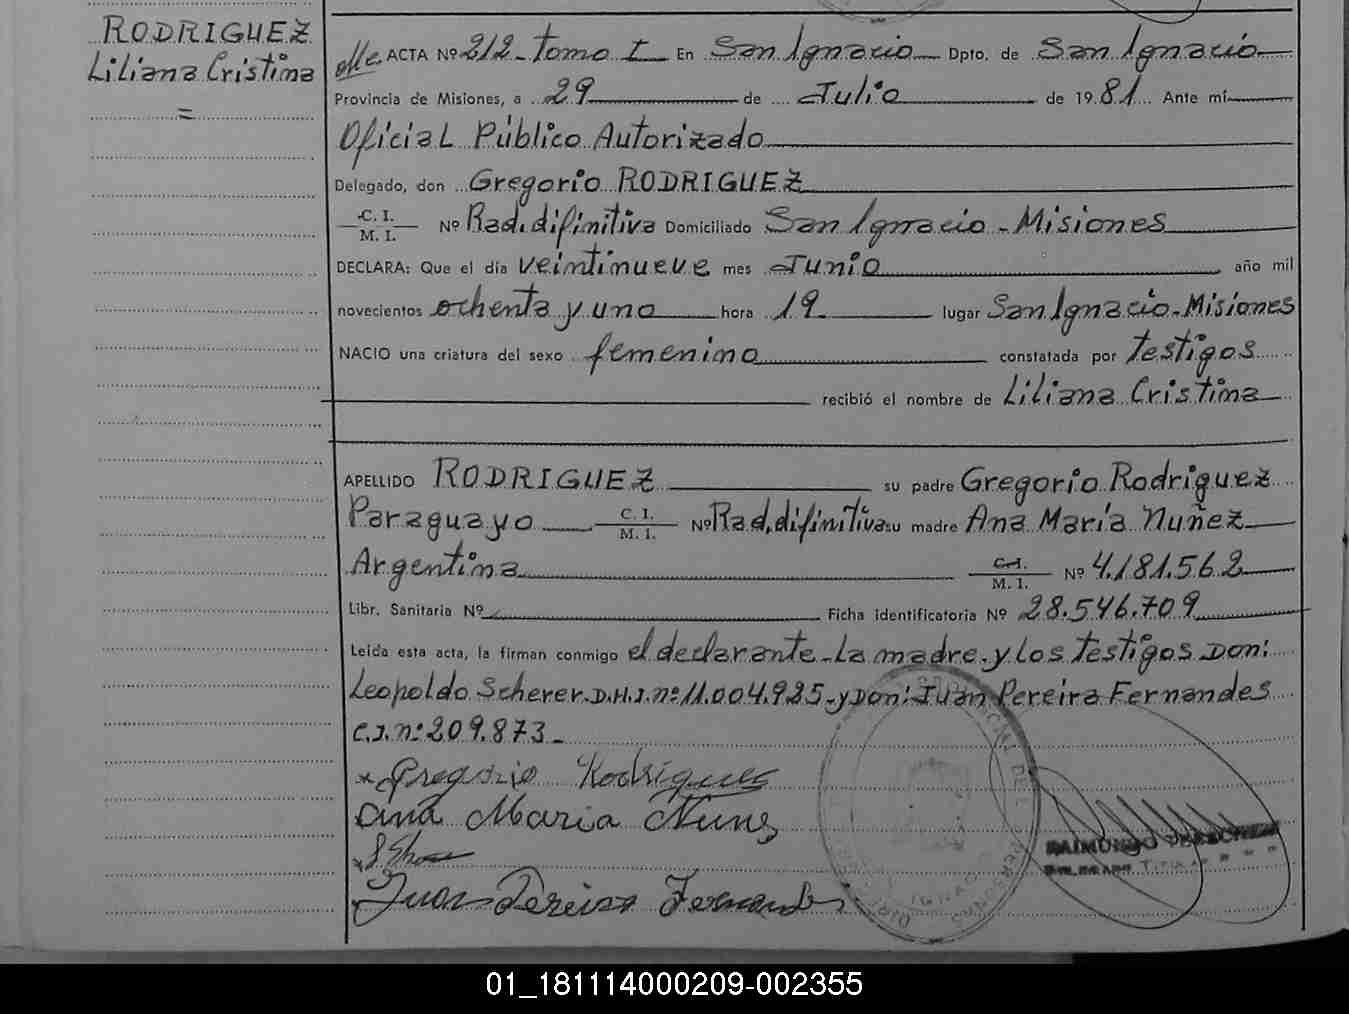 RODRIGUEZ
Liliana Cristina
=
ACTA Nº 212 - Tomo I En San Ignacio Dpto. de San Ignacio
Provincia de Misiones, a 29 de Julio de 1981 Ante mí
Oficial Público Autorizado
Delegado, don Gregorio RODRIGUEZ
C. I.
M. I. Nº Rad. difinitiva Domiciliado San Ignacio - Misiones
DECLARA: Que el día veintinueve mes Junio año mil
novecientos ochenta y uno hora 19 lugar San Ignacio - Misiones
NACIO una criatura del sexo femenino constatada por testigos
recibió el nombre de Liliana Cristina
APELLIDO RODRIGUEZ su padre Gregorio Rodriguez
Paraguayo C. I. M. I. Nº Rad. difinitiva su madre Ana María Nuñez
Argentina C. I. M. I. Nº 4.181.562
Libr. Sanitaria Nº Ficha identificatoria Nº 28.546.709
Leída esta acta, la firman conmigo el declarante - La madre - y los testigos Don:
Leopoldo Scherer D.N.I. nº 11.004.925 - y Don: Juan Pereira Fernandes
C.I. nº 209.873 -
Gregorio Rodrigues
Ana Maria Nunes
Juan Pereira Fernandes
RAIMUNDO
01_181114000209-002355